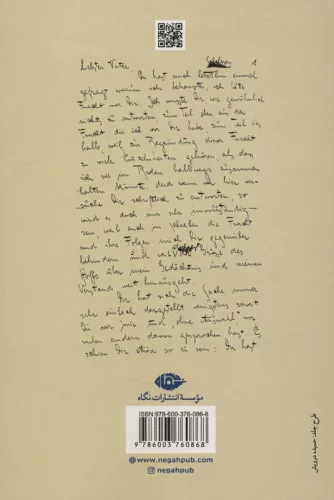 1
Liebster Vater,
Du hast mich letzthin einmal
gefragt, warum ich behaupte, ich hätte
Furcht vor Dir. Ich wusste Dir, wie gewöhnlich,
nichts zu antworten, zum Teil eben aus der
Furcht die ich vor Dir habe, zum Teil des-
halb, weil zur Begründung dieser Furcht
zu viele Einzelheiten gehören, als dass
ich sie im Reden halbwegs zusammen
halten könnte. Und wenn ich hier ver-
suche Dir schriftlich zu antworten, so
wird es doch nur sehr unvollständig
sein, weil auch im Schreiben die Furcht
und ihre Folgen mich Dir gegenüber
behindern und weil die Grösse des
Stoffs über mein Gedächtnis und meinen
Verstand weit hinausgeht.
Dir hat sich die Sache immer
sehr einfach dargestellt, wenigstens soweit
Du vor mir und, ohne Auswahl, vor
vielen andern davon gesprochen hast. Es
schien Dir etwa so zu sein: Du hast
مؤسسة انتشارات نگاه
ISBN: 978-600-376-086-8
9 786003 760868
www.negahpub.com
negahpub
طرح جلد: حمیده درویش